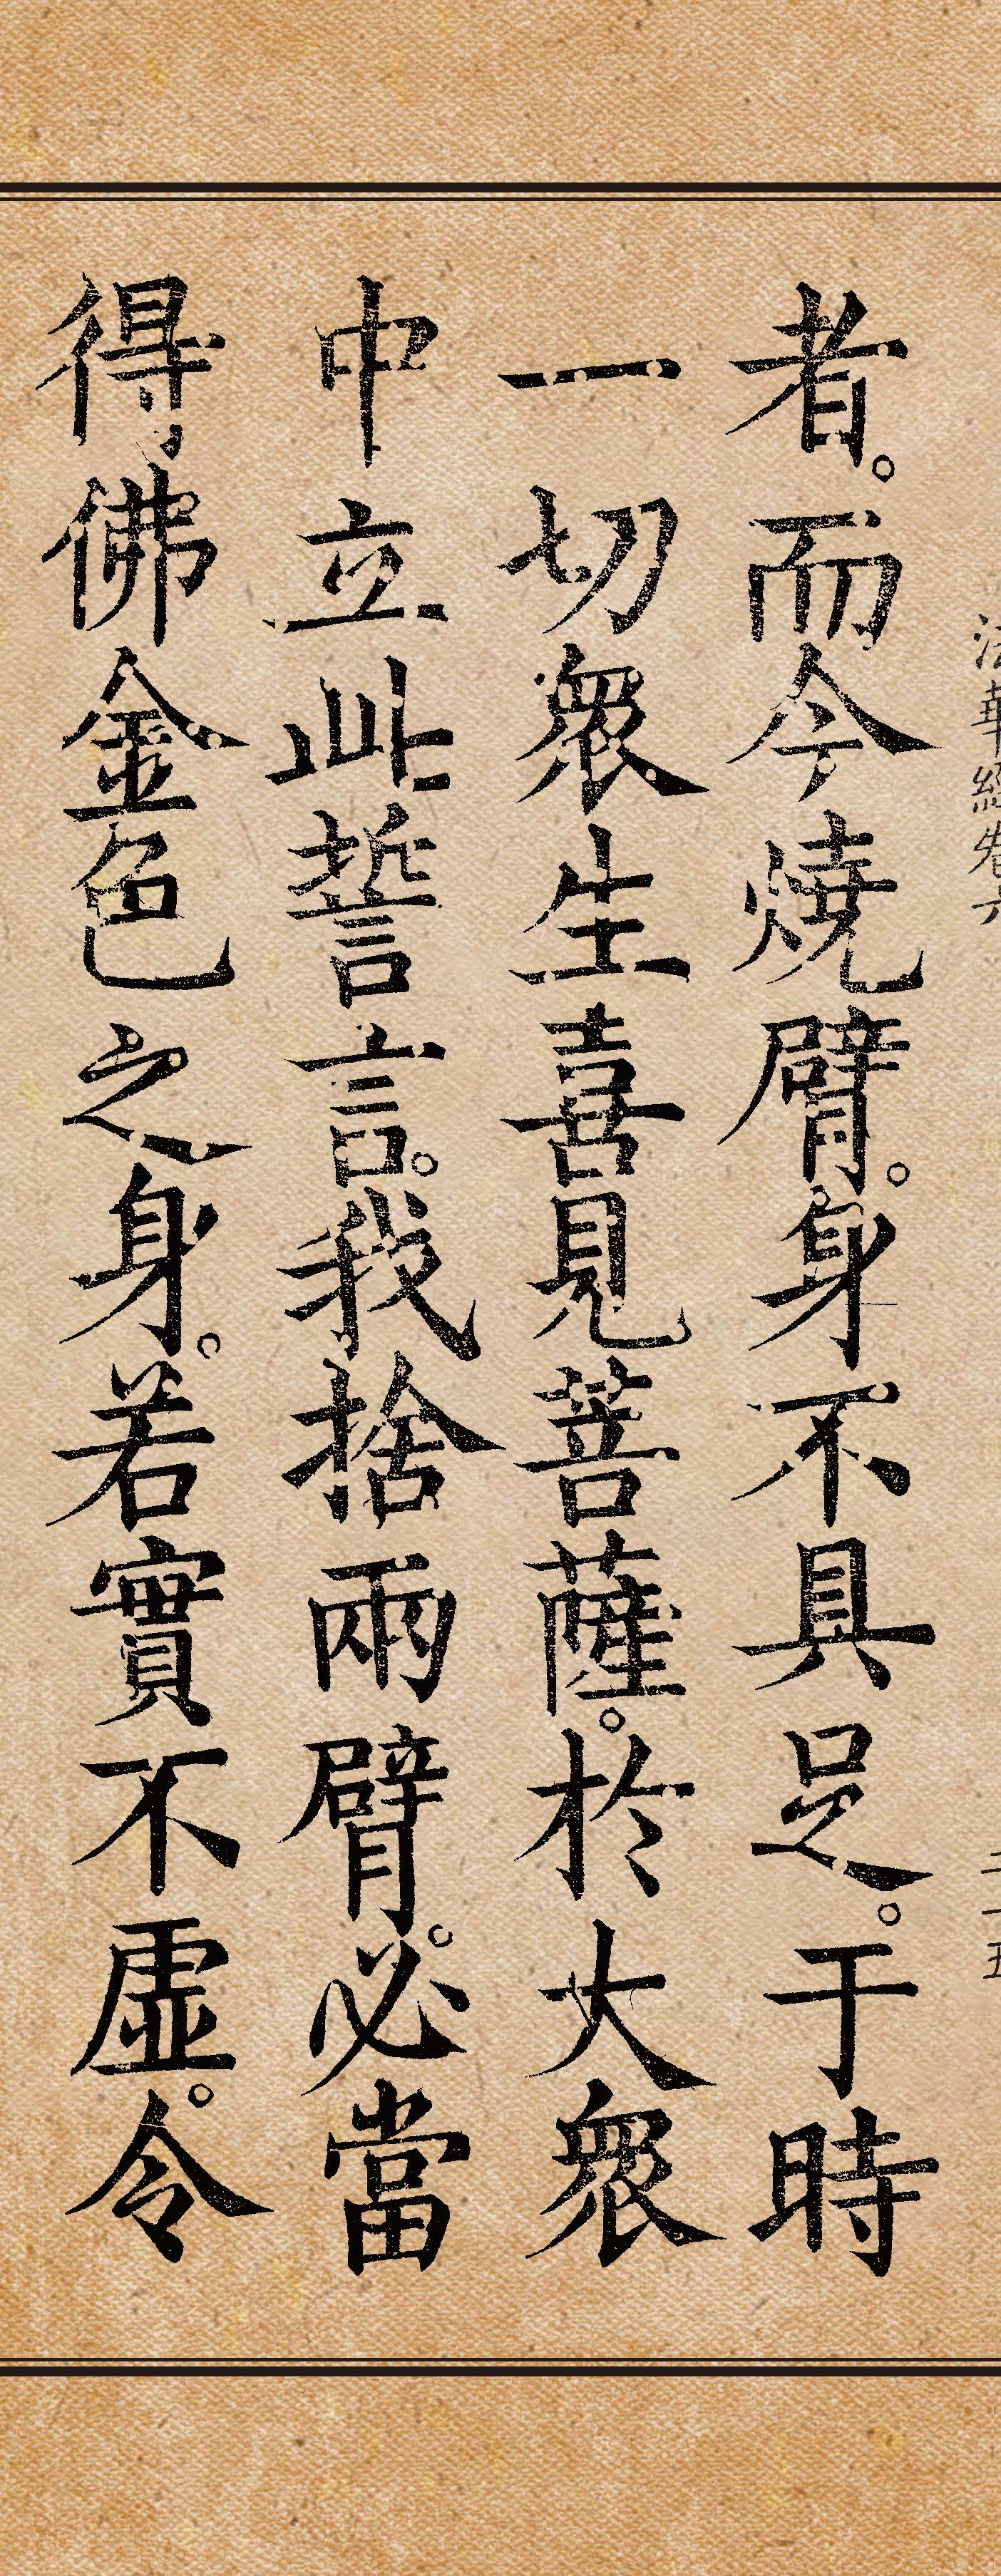 法華經卷六
二十五
者。而今燒臂。身不具足。于時
一切眾生喜見菩薩。於大眾
中立此誓言。我捨兩臂。必當
得佛金色之身。若實不虛。令